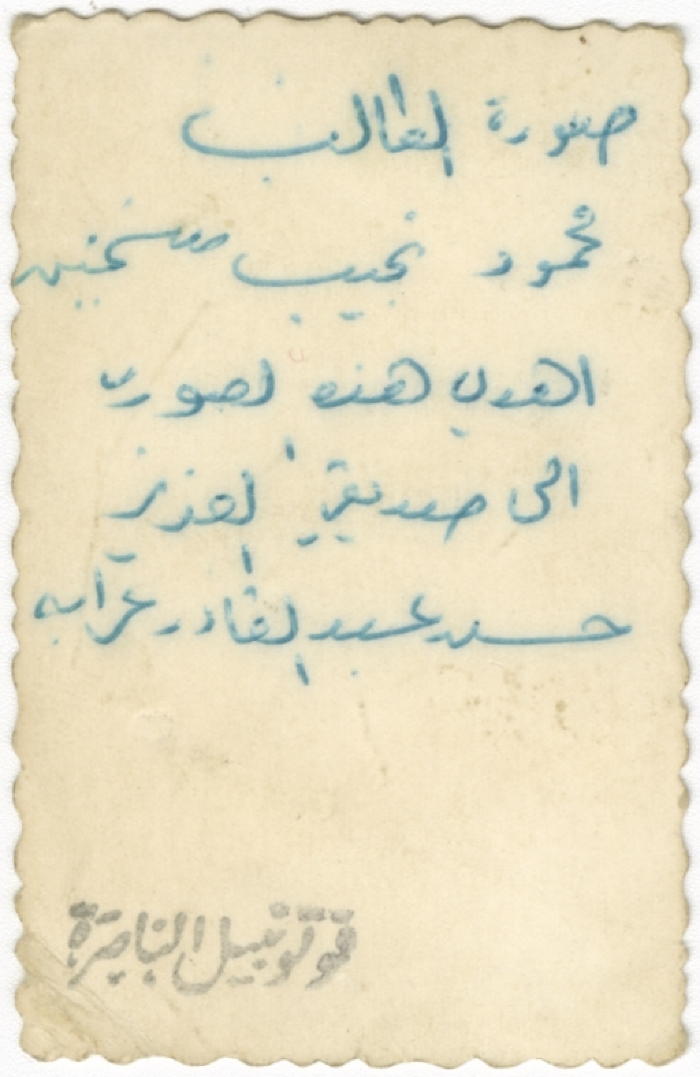 صورة الطالب
محمود نجيب
اهدي هذه لصورت
الى صديقي العزيز
حسن عبد القادر غرابه
فوتو نبيل الناصرة